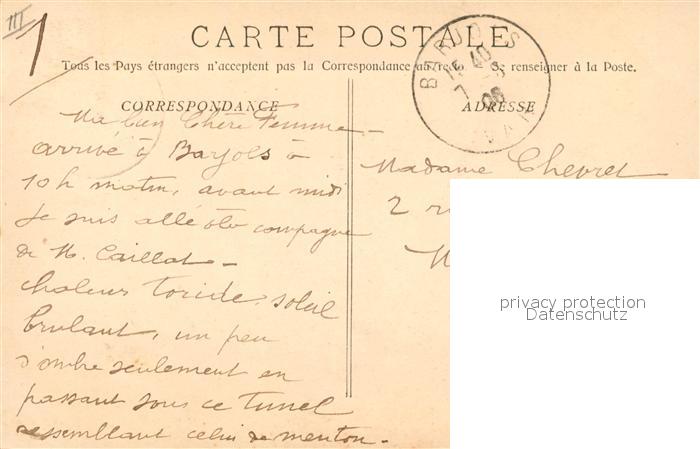 III
1
CARTE POSTALE
Tous les Pays étrangers n'acceptent pas la Correspondance au recto Se renseigner à la Poste.
CORRESPONDANCE
Ma bien Chère Femme -
arrivé à Barjols à
10 h matin, avant midi
Je suis allé compagne
de M. Caillat -
chaleur toride, soleil
brulant, un peu
d'ombre seulement en
passant sous ce tunel
ressemblant celui de menton -
ADRESSE
Madame Chevret
2
BARJOLS
15 40
7
08
VAR
privacy protection
Datenschutz